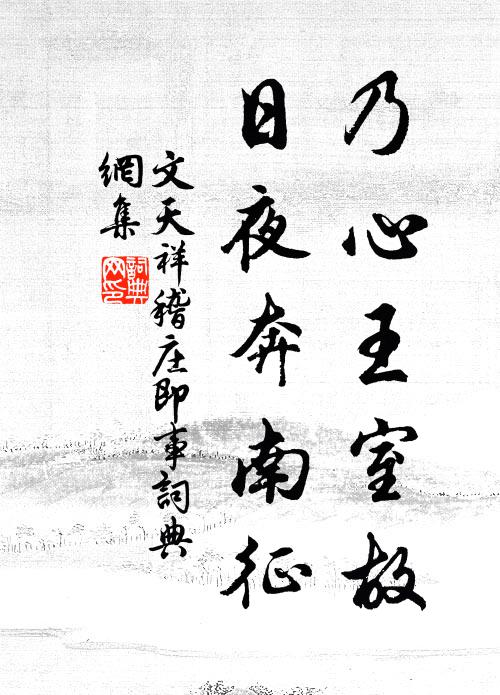 乃心王室故
日夜奔南征
文天祥稽庄即事詞典
網集
詞典網印